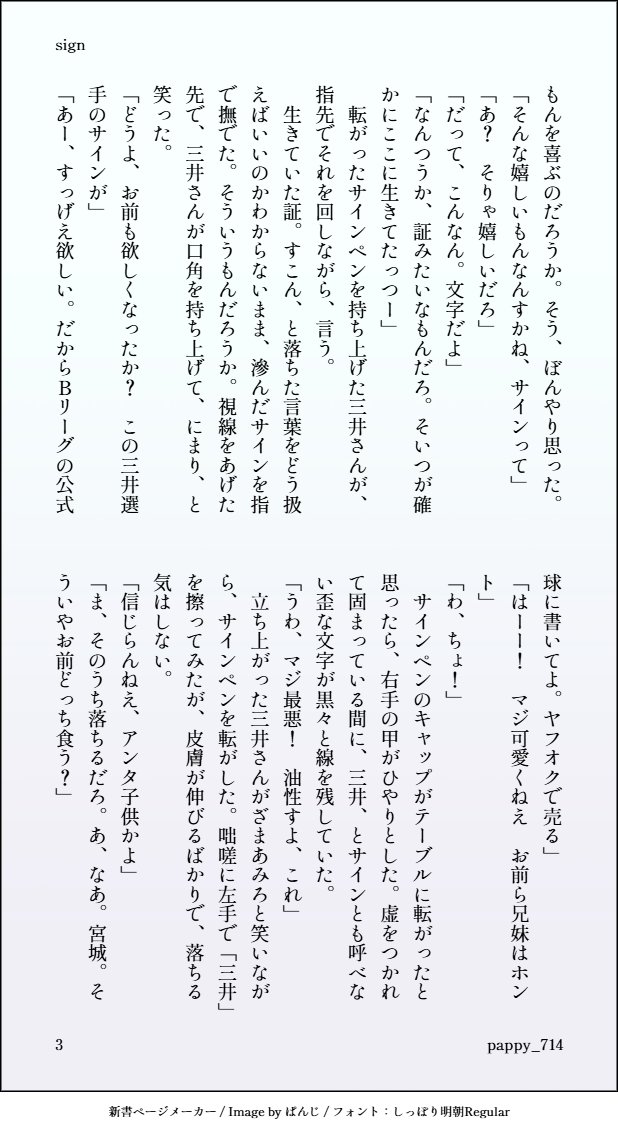 sign
もんを喜ぶのだろうか。そう、ぼんやり思った。
「そんな嬉しいもんなんすかね、サインって」
「あ？　そりゃ嬉しいだろ」
「だって、こんなん。文字だよ」
「なんつうか、証みたいなもんだろ。そいつが確
かにここに生きてたっつー」
　転がったサインペンを持ち上げた三井さんが、
指先でそれを回しながら、言う。
　生きていた証。すこん、と落ちた言葉をどう扱
えばいいのかわからないまま、滲んだサインを指
で撫でた。そういうもんだろうか。視線をあげた
先で、三井さんが口角を持ち上げて、にまり、と
笑った。
「どうよ、お前も欲しくなったか？　この三井選
手のサインが」
「あー、すっげえ欲しい。だからＢリーグの公式
球に書いてよ。ヤフオクで売る」
「はーー！　マジ可愛くねえ　お前ら兄妹はホン
ト」
「わ、ちょ！」
　サインペンのキャップがテーブルに転がったと
思ったら、右手の甲がひやりとした。虚をつかれ
て固まっている間に、三井、とサインとも呼べな
い歪な文字が黒々と線を残していた。
「うわ、マジ最悪！　油性すよ、これ」
　立ち上がった三井さんがざまあみろと笑いなが
ら、サインペンを転がした。咄嗟に左手で「三井」
を擦ってみたが、皮膚が伸びるばかりで、落ちる
気はしない。
「信じらんねえ、アンタ子供かよ」
「ま、そのうち落ちるだろ。あ、なあ。宮城。そ
ういやお前どっち食う？」
3
pappy_714
新書ページメーカー / Image by ぱんじ / フォント：しっぽり明朝Regular